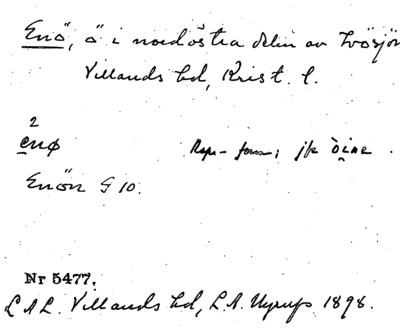 Enö, ö i nordöstra delen av Ivösjön
Villands hd, Krist. l.
2
enø jfr
Enön G 10.
Nr 5477.
L.A.L. Villands hd, L.A. Nyrup 1898.